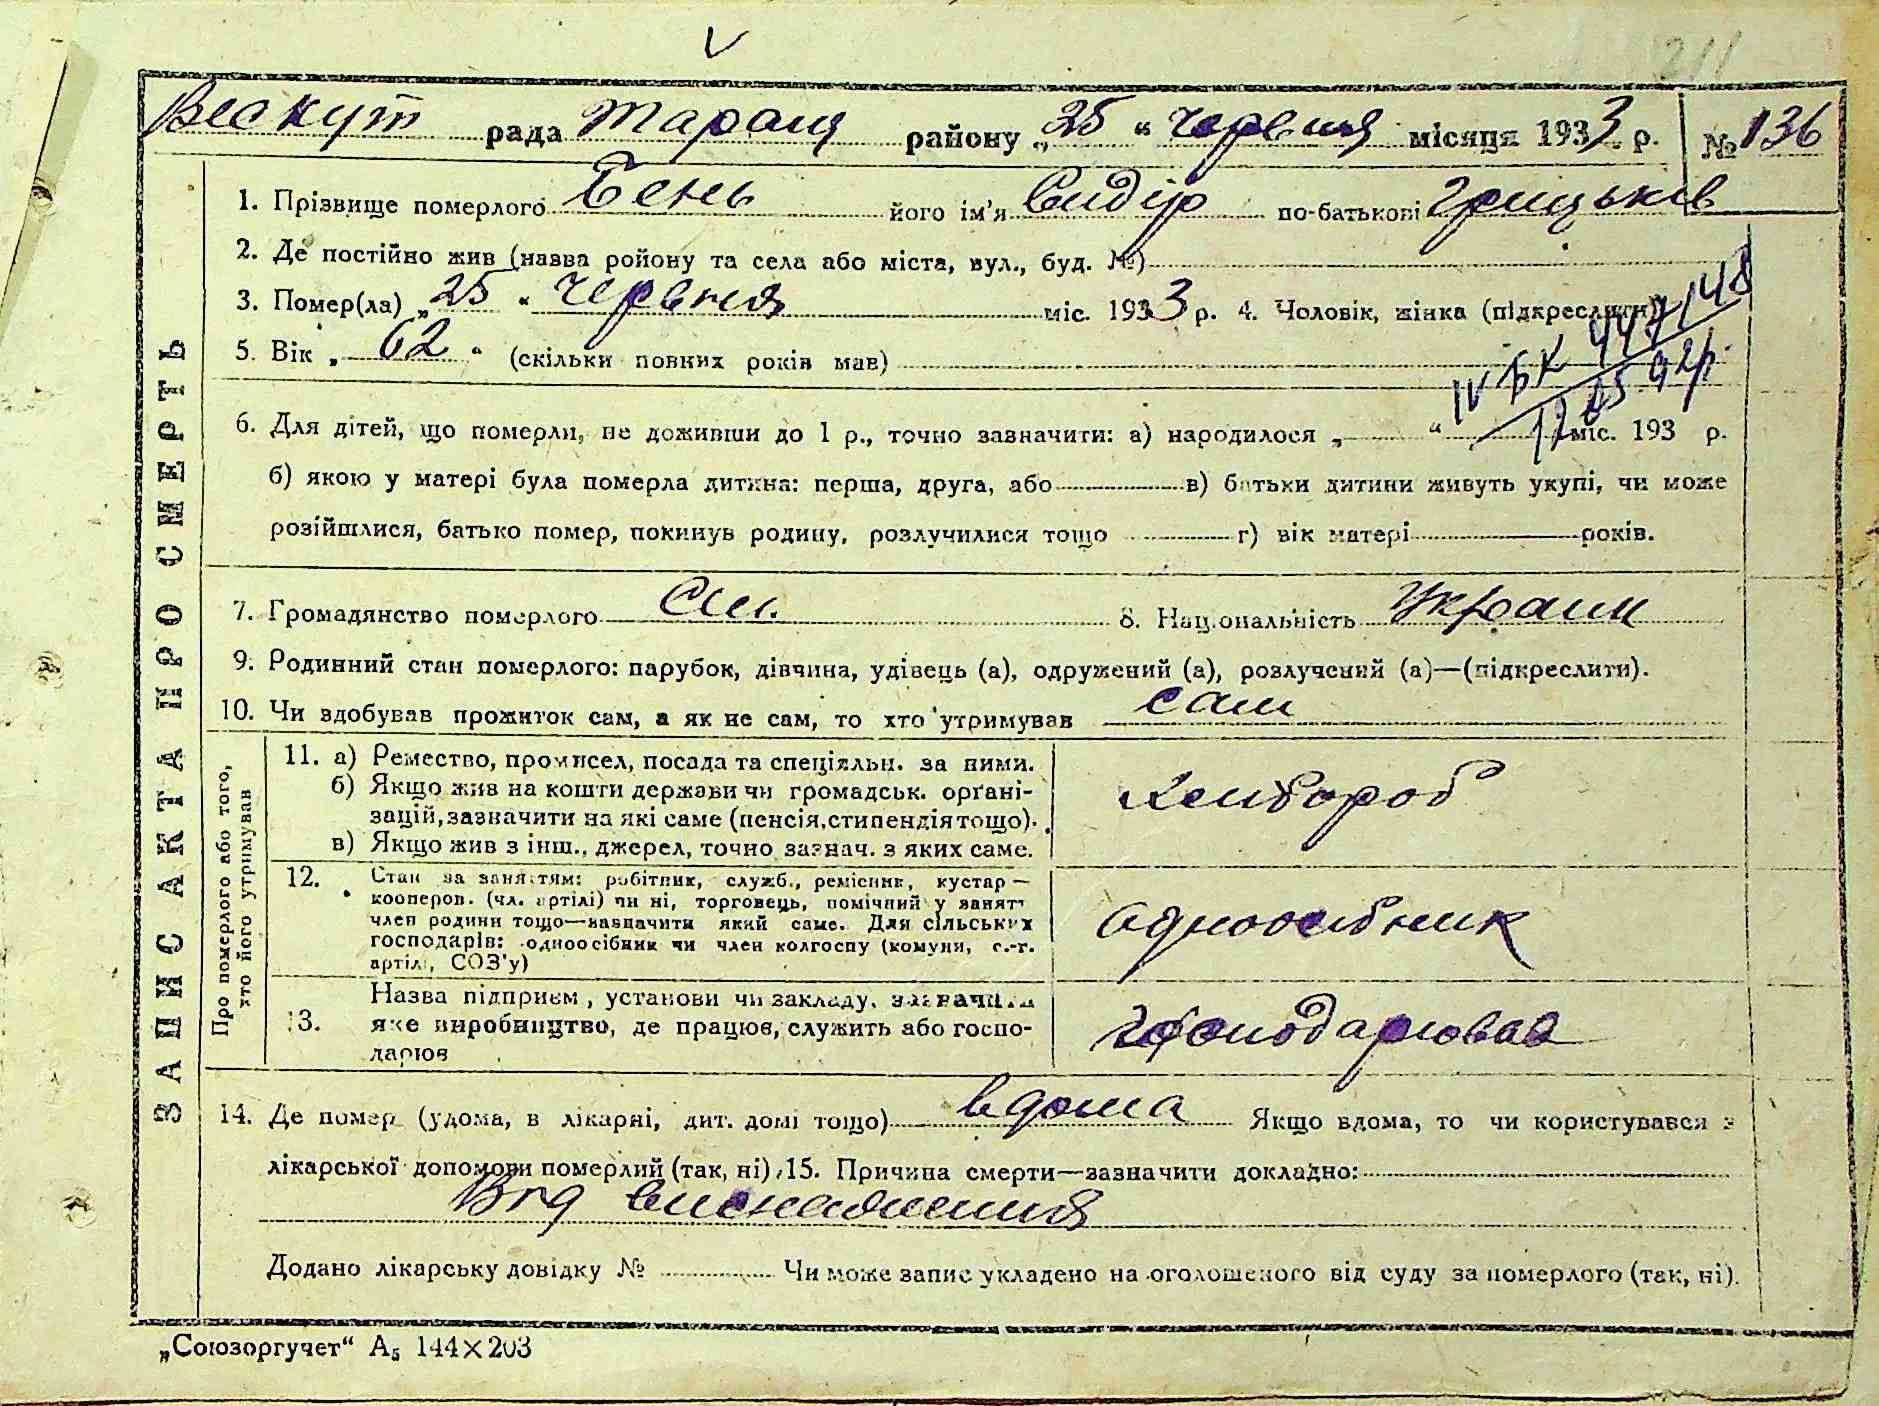 211
Вескут рада Таращ району „25“ червня місяця 1933 р. № 136
ЗАПИС АКТА ПРО СМЕРТЬ
1. Прізвище померлого Бень його ім'я Сидір по-батькові Грицьків
2. Де постійно жив (назва ройону та села або міста, вул., буд. №)
3. Помер(ла) „25“ червня міс. 1933 р. 4. Чоловік, жінка (підкреслити)
5. Вік „62“ (скільки повних років мав)
IV БК 447148
12 05 92р.
6. Для дітей, що померли, не доживши до 1 р., точно зазначити: а) народилося „ “ міс. 193 р.
б) якою у матері була померла дитина: перша, друга, або в) батьки дитини живуть укупі, чи може
розійшлися, батько помер, покинув родину, розлучилися тощо г) вік матері років.
7. Громадянство померлого 8. Національність Украин
9. Родинний стан померлого: парубок, дівчина, удівець (а), одружений (а), розлучений (а)—(підкреслити).
10. Чи здобував прожиток сам, а як не сам, то хто утримував сам
Про померлого або того, хто його утримував
11. а) Ремество, промисел, посада та спеціяльн. за ними.
б) Якщо жив на кошти держави чи громадськ. орґані-
зацій, зазначити на які саме (пенсія, стипендія тощо).
в) Якщо жив з інш., джерел, точно зазнач. з яких саме.
Хлібороб
12. Стан за заняттям: робітник, служб., ремісник, кустар—
кооперов. (чл. артілі) чи ні, торговець, помічний у занятт
член родини тощо—зазначити який саме. Для сільських
господарів: одноосібник чи член колгоспу (комуни, с.-г.
артілі, СОЗ'у)
одноосібник
13. Назва підприєм, установи чи закладу, зазначити
яке виробництво, де працюв, служить або госпо-
дарюв
господарював
14. Де помер (удома, в лікарні, дит. домі тощо) вдома Якщо вдома, то чи користувався з
лікарської допомови померлий (так, ні) 15. Причина смерти—зазначити докладно:
Від виснаження
Додано лікарську довідку № Чи може запис укладено на оголошеного від суду за померлого (так, ні).
„Союзоргучет“ А₅ 144×203